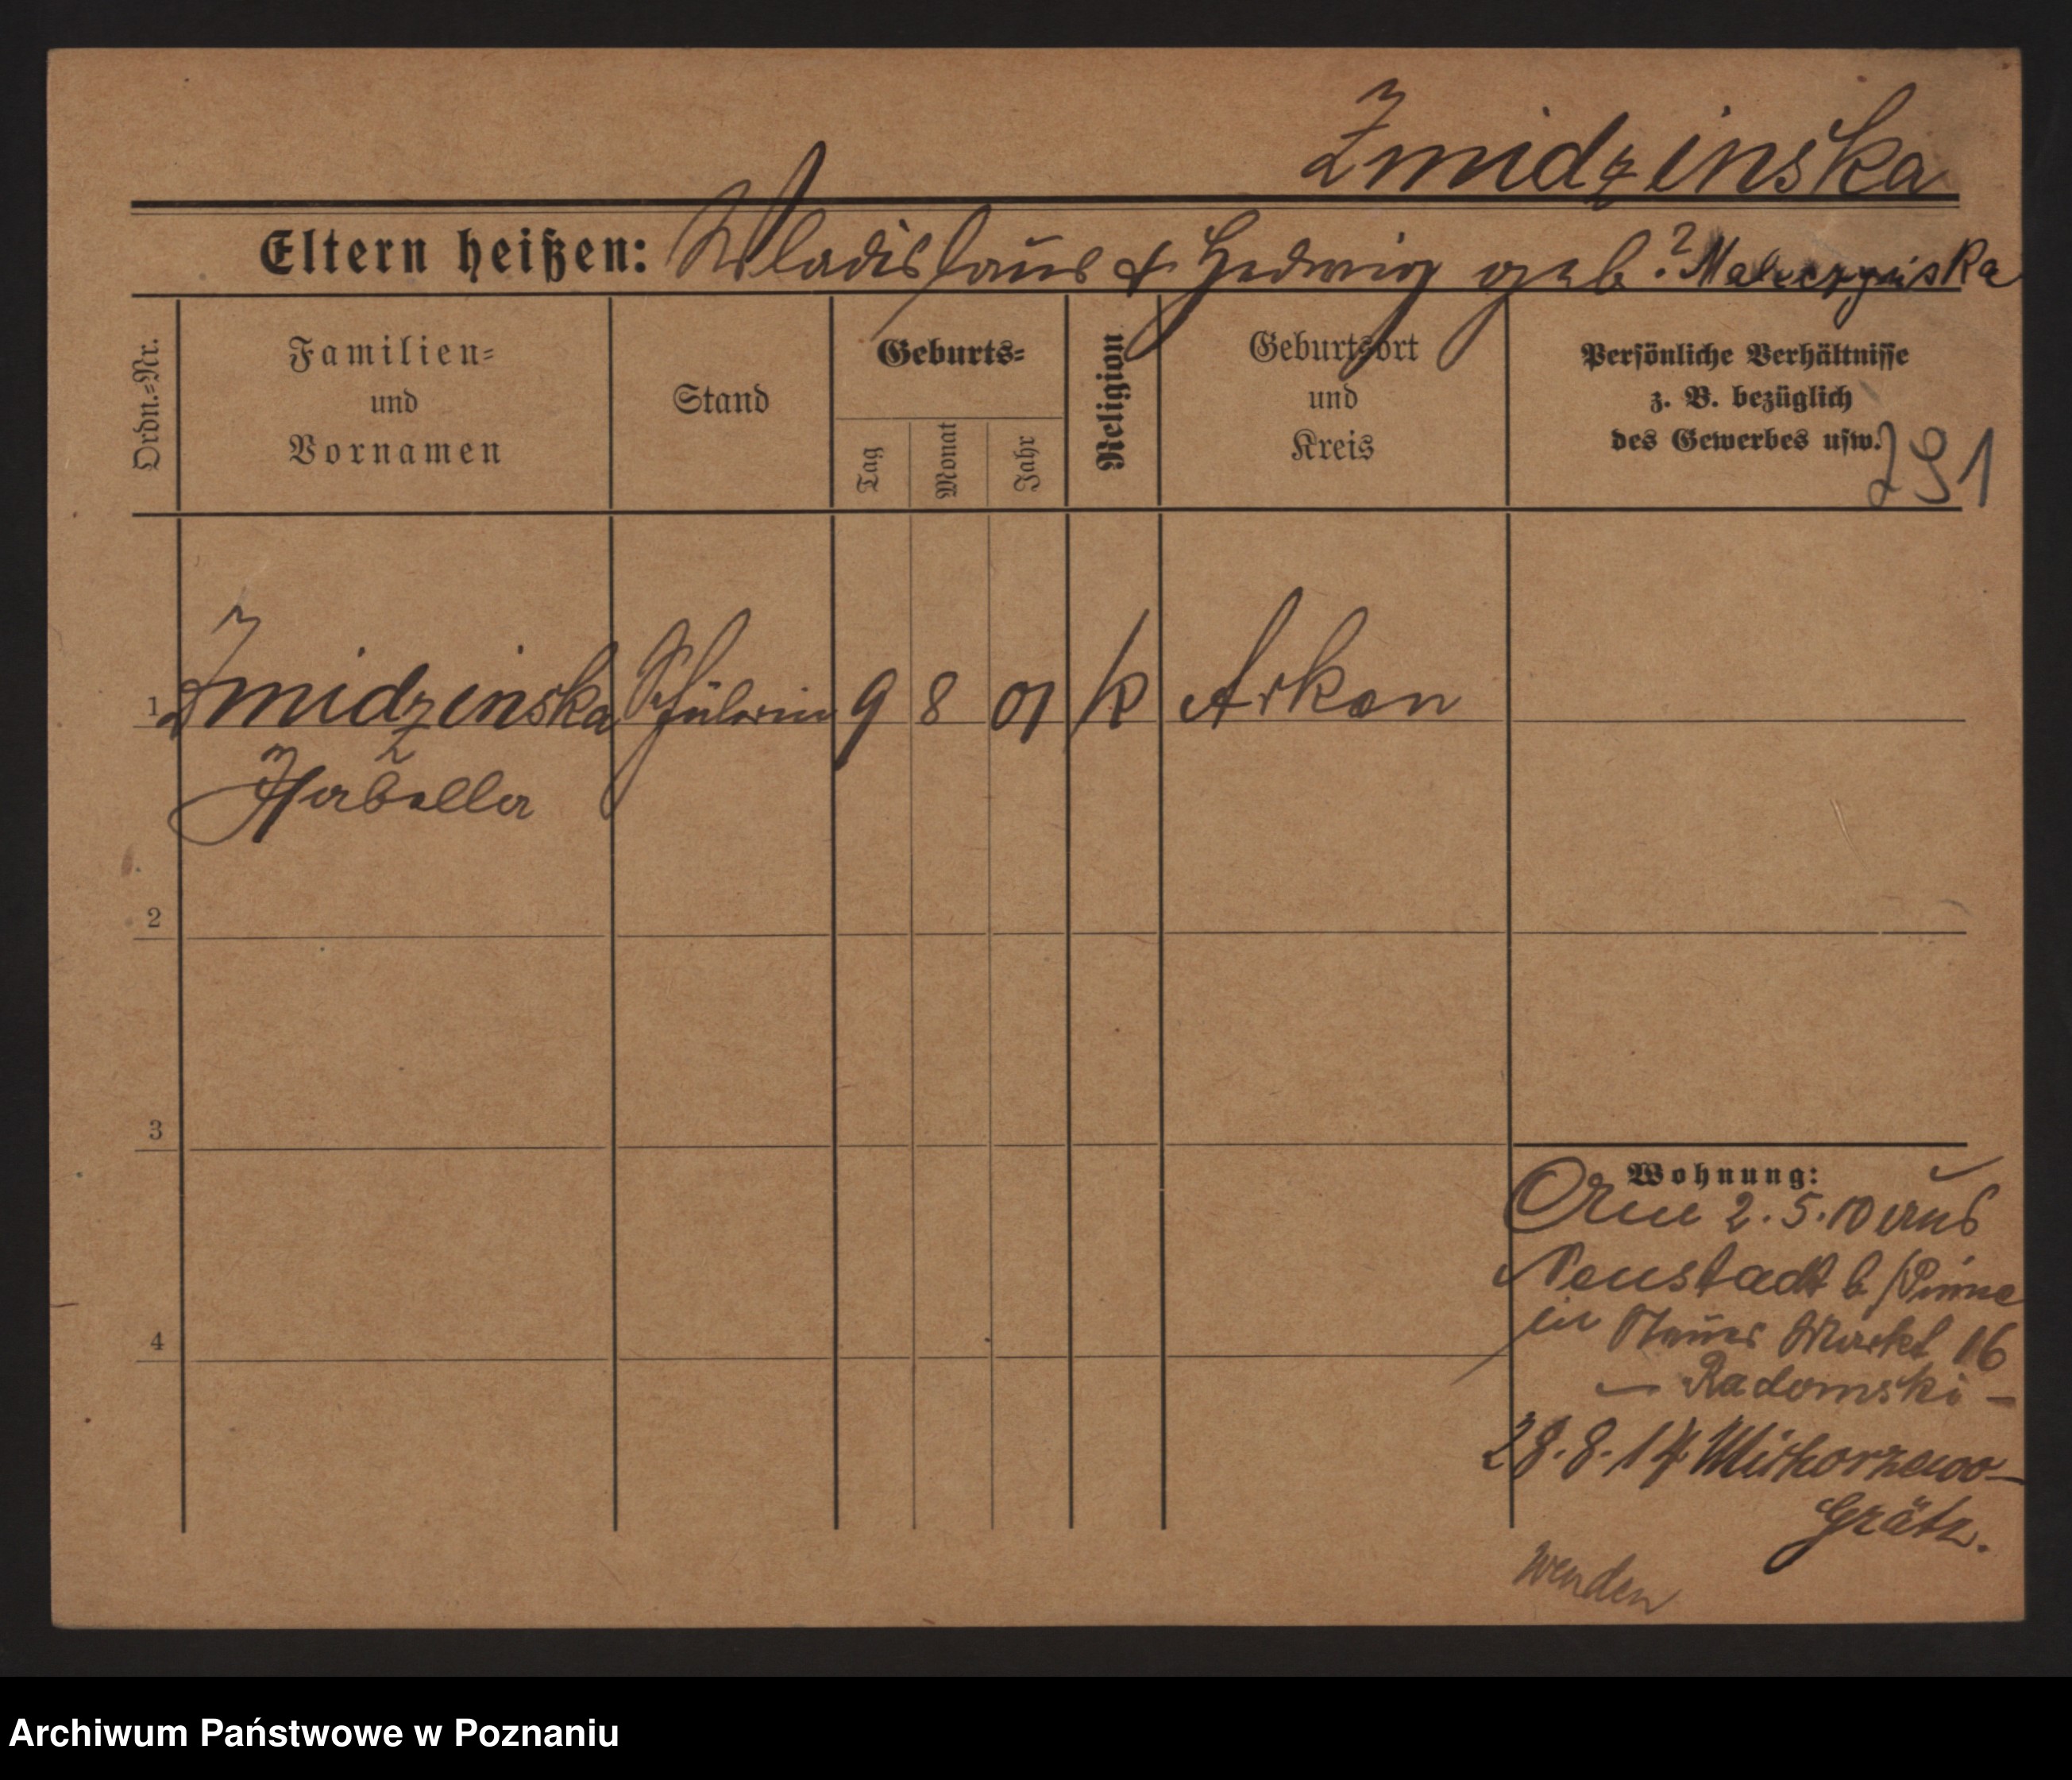 Zmidzinska
Eltern heißen: Wladislaus & Hedwig geb. ?
Ordn.=Nr.
Familien=
und
Vornamen
Stand
Geburts=
Tag
Monat
Jahr
Religion
Geburtsort
und
Kreis
Persönliche Verhältnisse
z. B. bezüglich
des Gewerbes usw.
291
1 Zmidzinska Schülerin 9 8 01 k Arkon
2
3
4
Wohnung:
2.5.10 aus
Neustadt b/Pinne
in Markt 16
– Radomski –
28.8.14
Grätz.
wenden
Archiwum Państwowe w Poznaniu